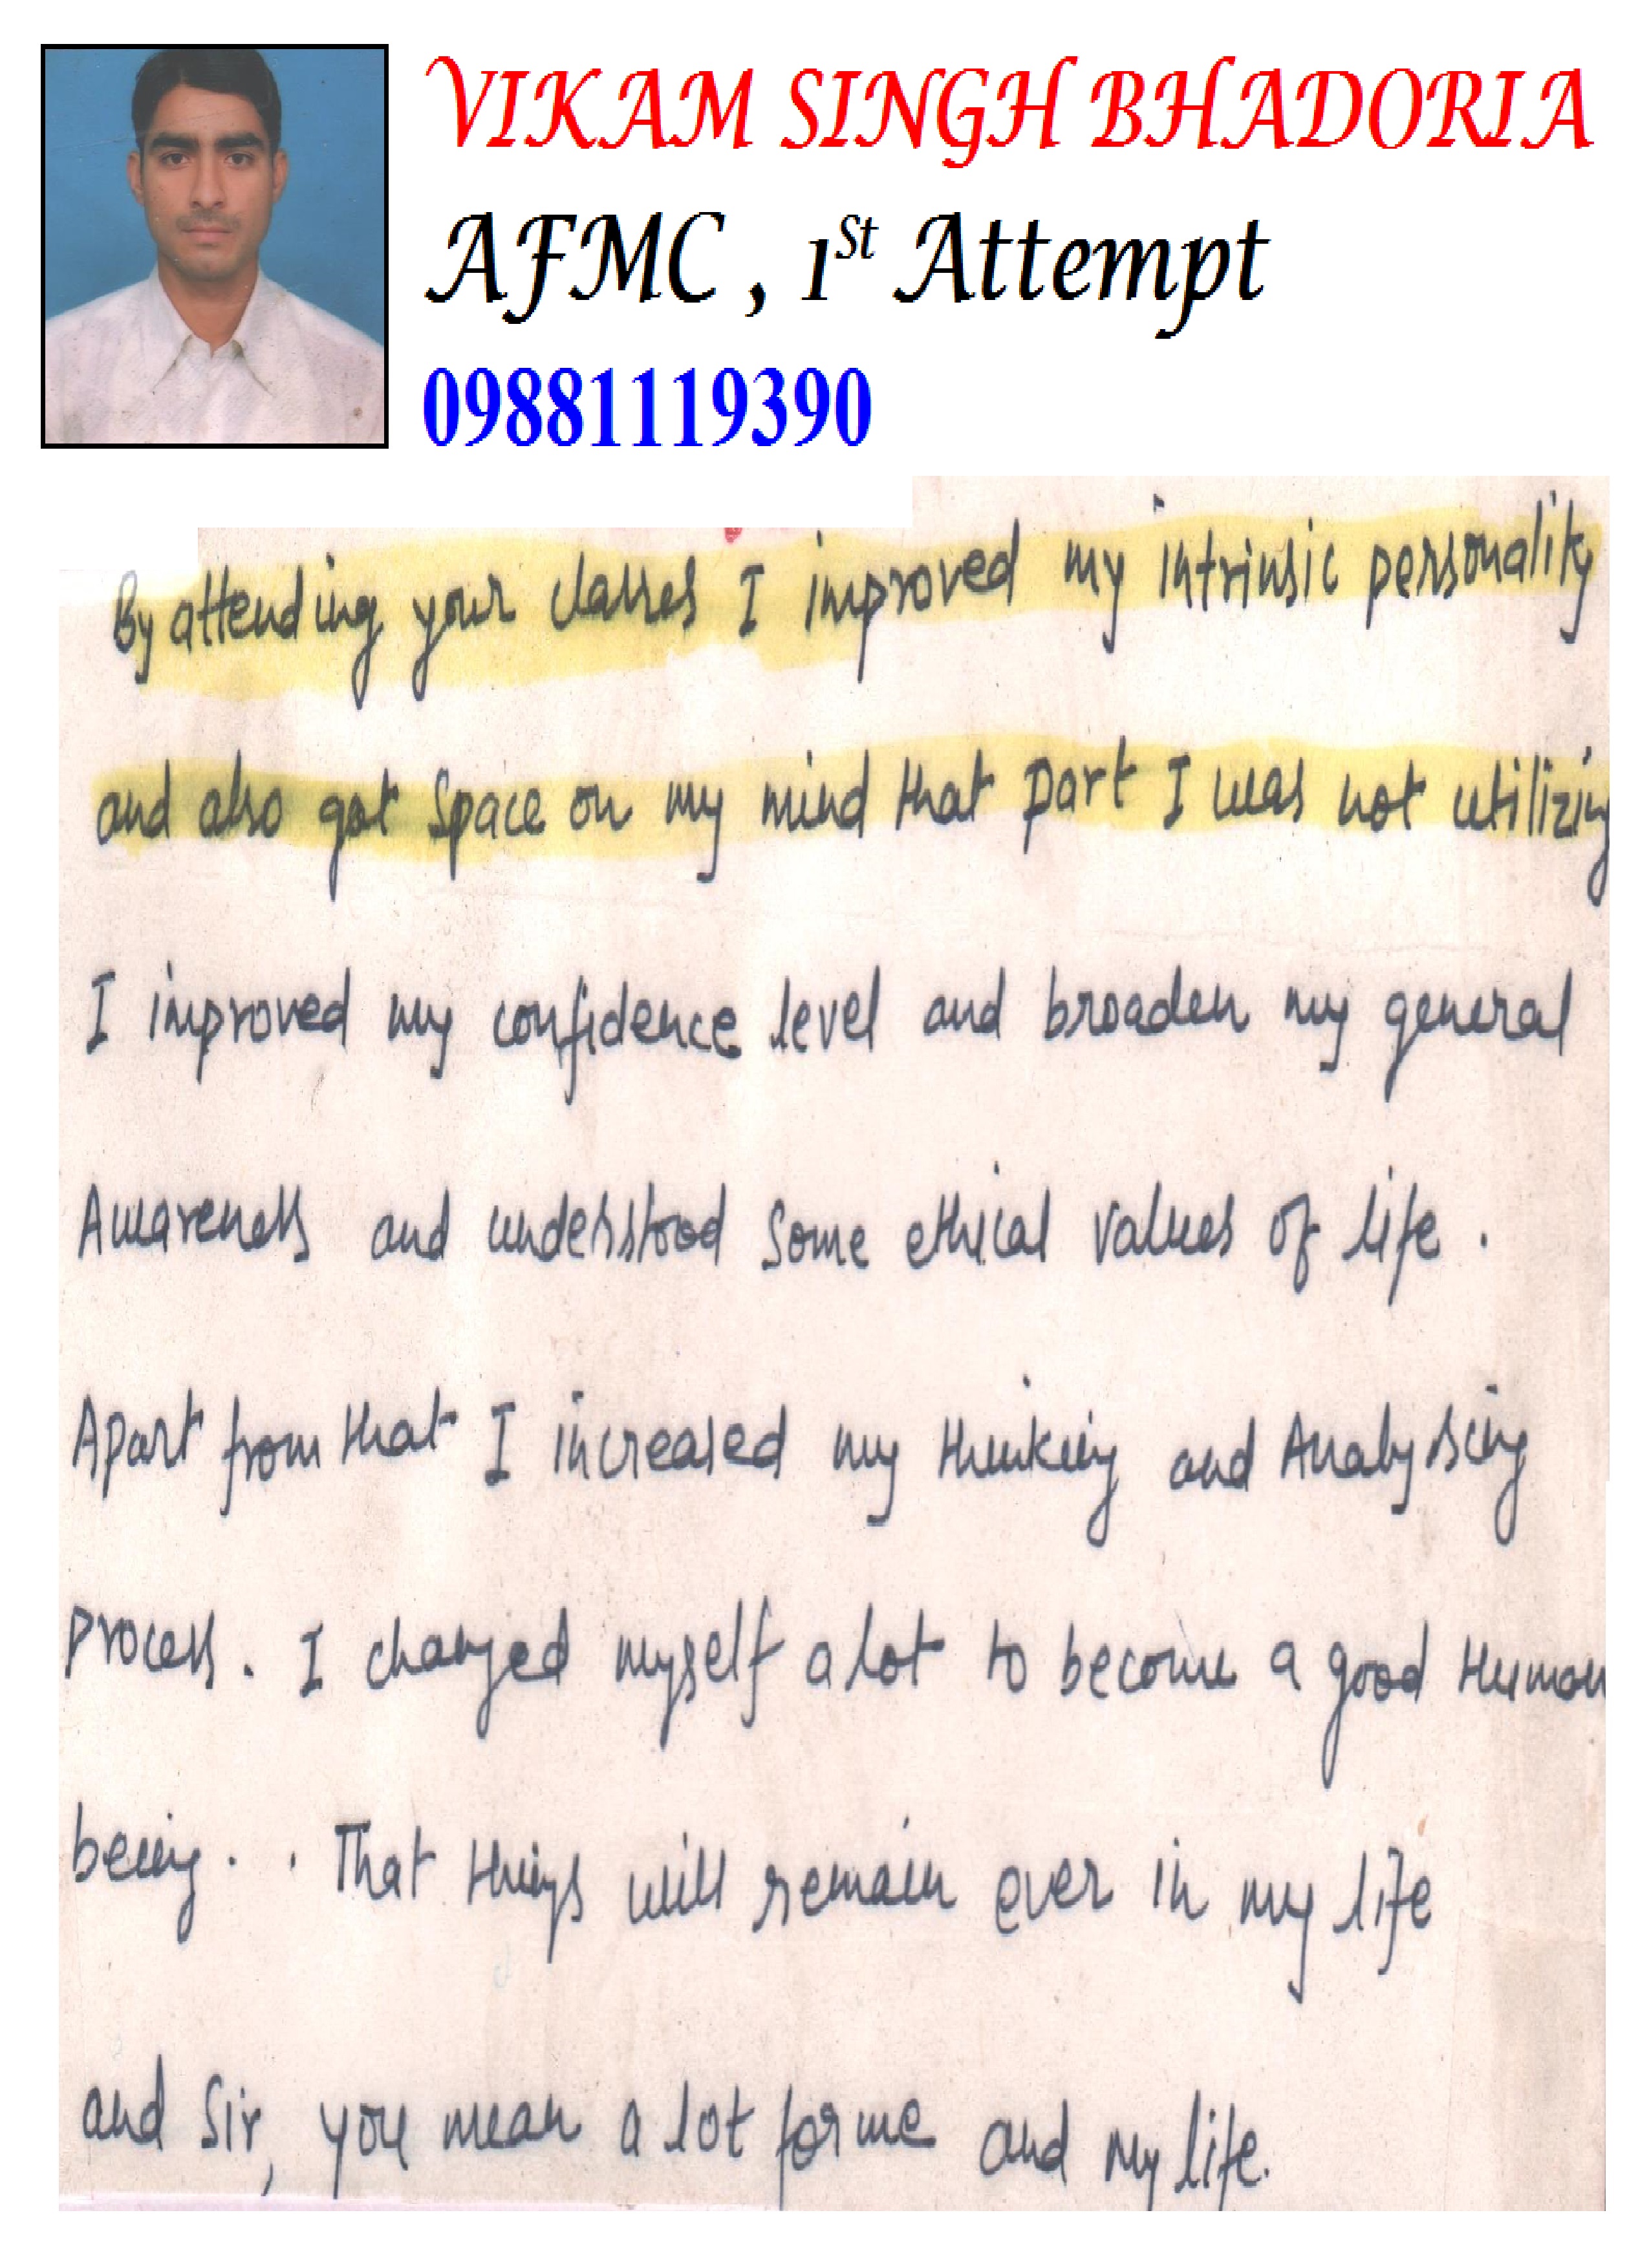 VIKAM SINGH BHADORIA
AFMC , 1St Attempt
09881119390
By attending your classes I improved my intrinsic personality
and also got space on my mind that part I was not utilizing
I improved my confidence level and broaden my general
Awareness and understood some ethical values of life .
Apart from that I increased my thinking and Analyscing
process . I changed myself a lot to become a good Human
being . . That things will remain ever in my life
and Sir, you mean a lot for me and my life.